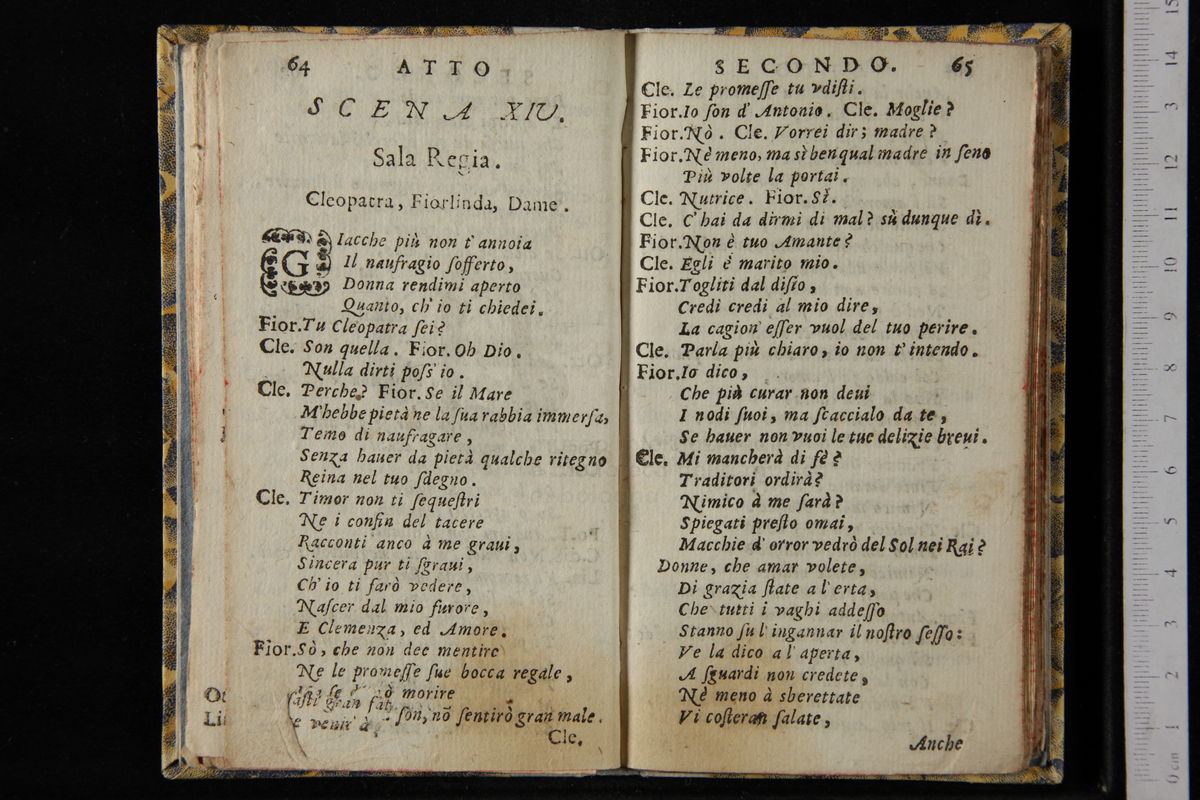 64 ATTO
SCENA XIV.
Sala Regia.
Cleopatra, Fiorlinda, Dame.
GIacche più non t'annoia
Il naufragio ſofferto,
Donna rendimi aperto
Quanto, ch'io ti chiedei.
Fior. Tu Cleopatra ſei?
Cle. Son quella. Fior. Oh Dio.
Nulla dirti poſs'io.
Cle. Perche? Fior. Se il Mare
M'hebbe pietà ne la ſua rabbia immerſa,
Temo di naufragare,
Senza hauer da pietà qualche ritegno
Reina nel tuo ſdegno.
Cle. Timor non ti ſequeſtri
Ne i confin del tacere
Racconti anco à me graui,
Sincera pur ti ſgraui,
Ch'io ti farò vedere,
Naſcer dal mio furore,
E Clemenza, ed Amore.
Fior. Sò, che non dee mentire
Ne le promeſſe ſue bocca regale,
morire
ſon, nō ſentirò gran male.
Cle.
SECONDO. 65
Cle. Le promeſſe tu vdiſti.
Fior. Io ſon d'Antonio. Cle. Moglie?
Fior. Nò. Cle. Vorrei dir; madre?
Fior. Nè meno, ma sì ben qual madre in ſeno
Più volte la portai.
Cle. Nutrice. Fior. Sì.
Cle. C'hai da dirmi di mal? sù dunque dì.
Fior. Non è tuo Amante?
Cle. Egli è marito mio.
Fior. Togliti dal diſio,
Credi credi al mio dire,
La cagion' eſſer vuol del tuo perire.
Cle. Parla più chiaro, io non t'intendo.
Fior. Io dico,
Che più curar non deui
I nodi ſuoi, ma ſcaccialo da te,
Se hauer non vuoi le tue delizie breui.
Cle. Mi mancherà di fè?
Traditori ordirà?
Nimico à me ſarà?
Spiegati preſto omai,
Macchie d'orror vedrò del Sol nei Rai?
Donne, che amar volete,
Di grazia ſtate a l'erta,
Che tutti i vaghi addeſſo
Stanno ſu l'ingannar il noſtro ſeſſo:
Ve la dico a l'aperta,
A ſguardi non credete,
Nè meno à sberettate
Vi coſteran ſalate,
Anche